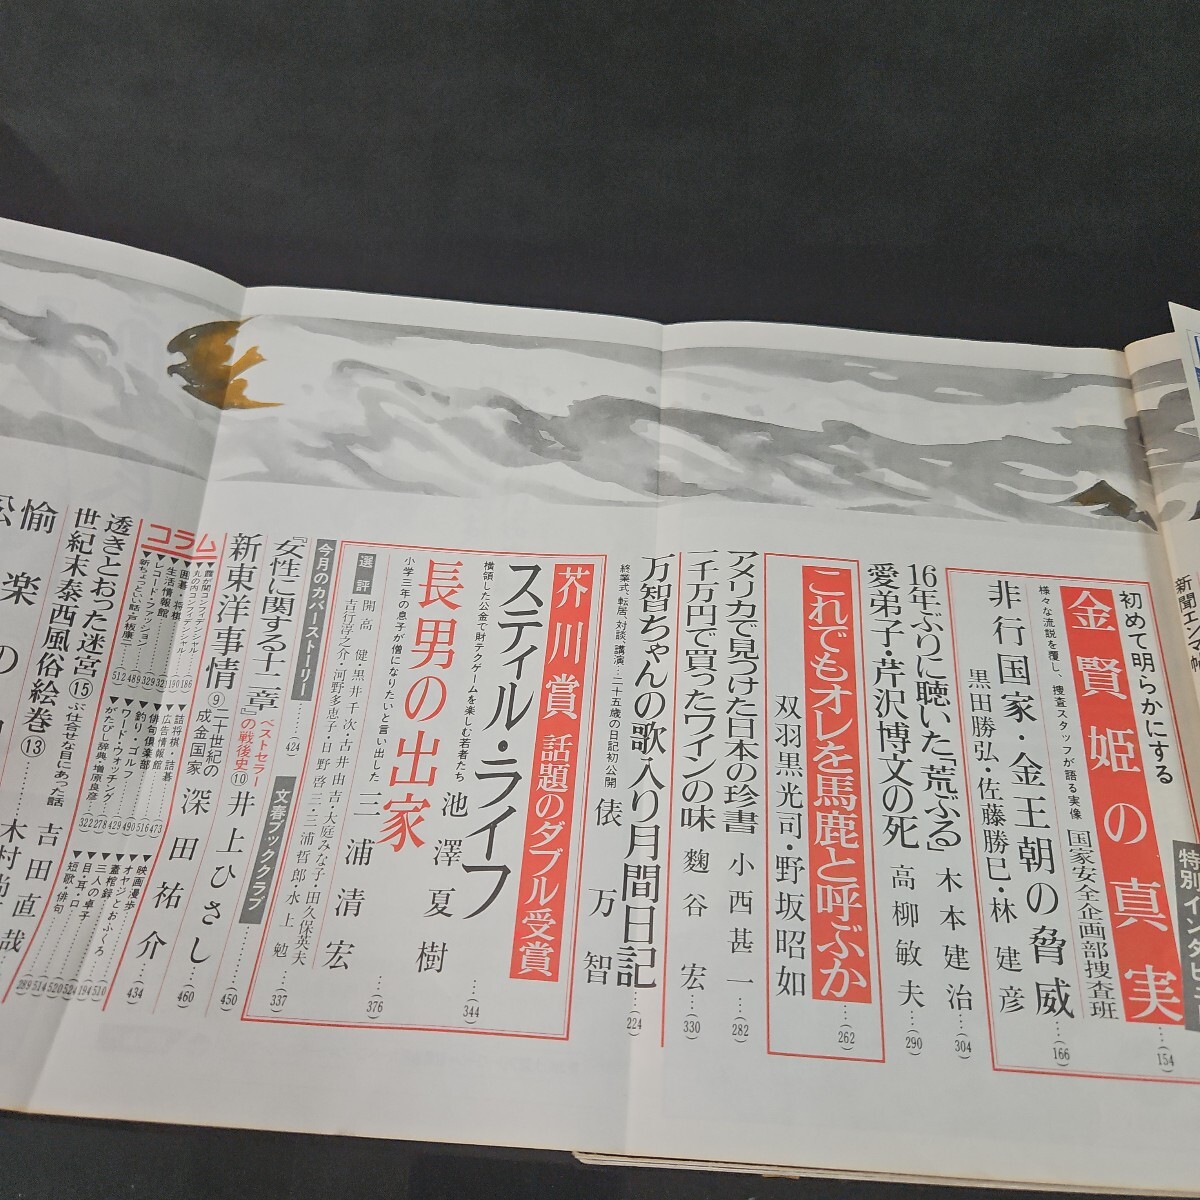 新聞エンマ帖
特別インタビュー
初めて明らかにする
金賢姫の真実
…(154)
様々な流説を覆し、捜査スタッフが語る実像
国家安全企画部捜査班
非行国家・金王朝の脅威
…(166)
黒田勝弘・佐藤勝巳・林建彦
16年ぶりに聴いた「荒ぶる」
木本建治
…(304)
愛弟子・芹沢博文の死
高柳敏夫
…(290)
これでもオレを馬鹿と呼ぶか
…(262)
双羽黒光司・野坂昭如
アメリカで見つけた日本の珍書
小西甚一
…(282)
一千万円で買ったワインの味
麴谷宏
…(330)
万智ちゃんの歌入り月間日記
…(224)
終業式、転居、対談、講演…二十五歳の日記初公開
俵万智
芥川賞 話題のダブル受賞
スティル・ライフ
…(344)
横領した公金で財テクゲームを楽しむ若者たち
池澤夏樹
長男の出家
小学三年の息子が僧になりたいと言い出した
三浦清宏
…(376)
選評
開高健・黒井千次・古井由吉・大庭みな子・田久保英夫
吉行淳之介・河野多恵子・日野啓三・三浦哲郎・水上勉
…(337)
今月のカバーストーリー
……(424)
文春ブッククラブ
『女性に関する十二章』
ベストセラーの戦後史⑩
井上ひさし
…(450)
新東洋事情
⑨二十世紀の成金国家
深田祐介
…(460)
コラム
▼霞が関コンフィデンシャル…186
▼丸の内コンフィデンシャル…190
▼囲碁・将棋…321
▼生活情報館…329
▼レコード・ファッション…489
▼新ちょっといい話・戸板康二…512
▼詰将棋・詰碁…473
▼広告情報館…516
▼俳句俱楽部…490
▼釣り・ゴルフ…429
▼ワード・ウォッチング…278
▼がたぴし辞典・増原良彦…322
▼映画漫歩…(434)
▼オヤジとおふくろ…510
▼蓋棺録…494
▼三人の卓子…524
▼目・耳・口…520
▼短歌・俳句…514
透きとおった迷宮⑮
ぶ仕合せな目にあった話
吉田直哉
…289
世紀末泰西風俗絵巻⑬
愉楽の